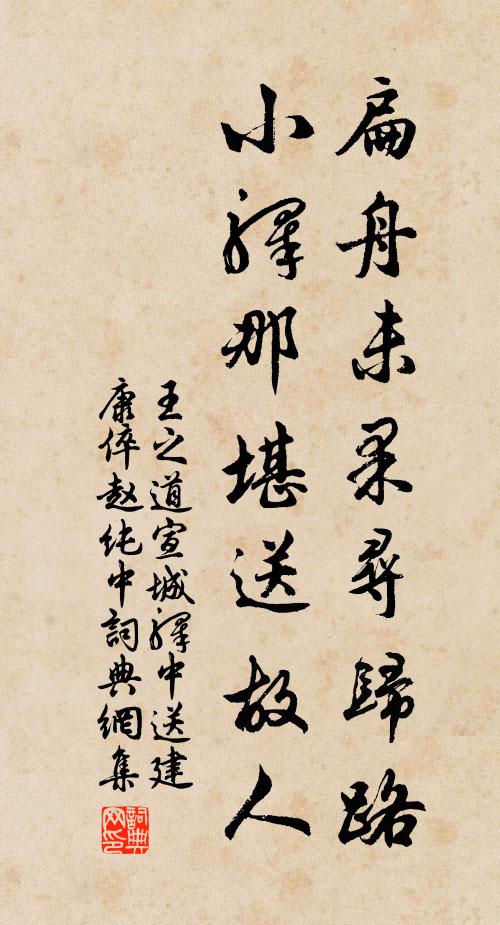 扁舟未果尋歸路
小驛那堪送故人
王之道宣城驛中送建
康倅赵纯中詞典網集
詞典网印